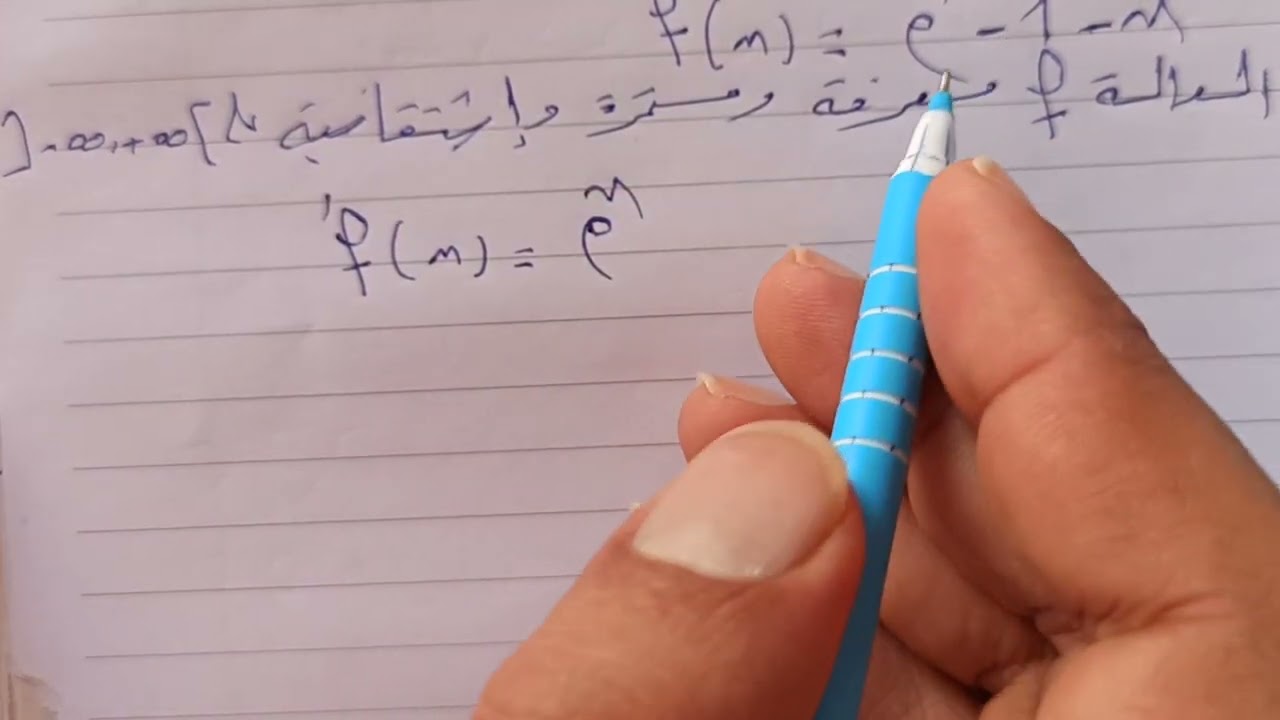 f(x) = e - 1 - x
الدالة f معرفة ومستمرة وإشتقاقية لـ ]-∞,+∞[
f'(x) = eˣ